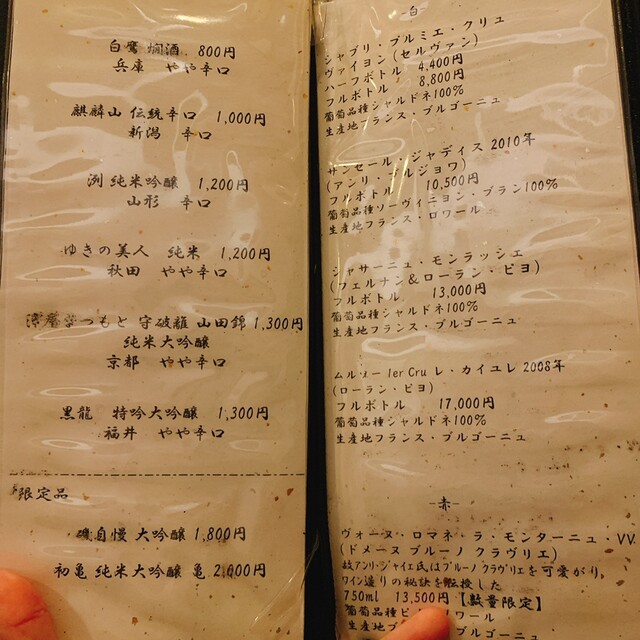 白鷹 燗酒 800円
兵庫 やや辛口
麒麟山 伝統辛口 1,000円
新潟 辛口
洌 純米吟醸 1,200円
山形 辛口
ゆきの美人 純米 1,200円
秋田 やや辛口
守破離 山田錦 1,300円
純米大吟醸
京都 やや辛口
黒龍 特吟大吟醸 1,300円
福井 やや辛口
限定品
磯自慢 大吟醸 1,800円
初亀 純米大吟醸 亀 2,600円
-白-
シャブリ・プルミエ・クリュ
ヴァイヨン(セルヴァン)
ハーフボトル 4,400円
フルボトル 8,800円
葡萄品種シャルドネ100%
生産地フランス・ブルゴーニュ
サンセール・ジャディス 2010年
(アンリ・ブルジョワ)
フルボトル 10,500円
葡萄品種ソーヴィニヨン・ブラン100%
生産地フランス・ロワール
シャサーニュ・モンラッシェ
(フェルナン&ローラン・ピヨ)
フルボトル 13,000円
葡萄品種シャルドネ100%
生産地フランス・ブルゴーニュ
ムルソー 1er Cru レ・カイユレ 2008年
(ローラン・ピヨ)
フルボトル 17,000円
葡萄品種シャルドネ100%
生産地フランス・ブルゴーニュ
-赤-
ヴォーヌ・ロマネ・ラ・モンターニュ・VV
(ドメーヌ ブルーノ クラヴリエ)
故アンリ・ジャイエ氏はブルーノ クラヴリエを可愛がり、
ワイン造りの秘訣を伝授した
750ml 13,500円【数量限定】
葡萄品種 ロワール
生産地 ブルゴーニュ